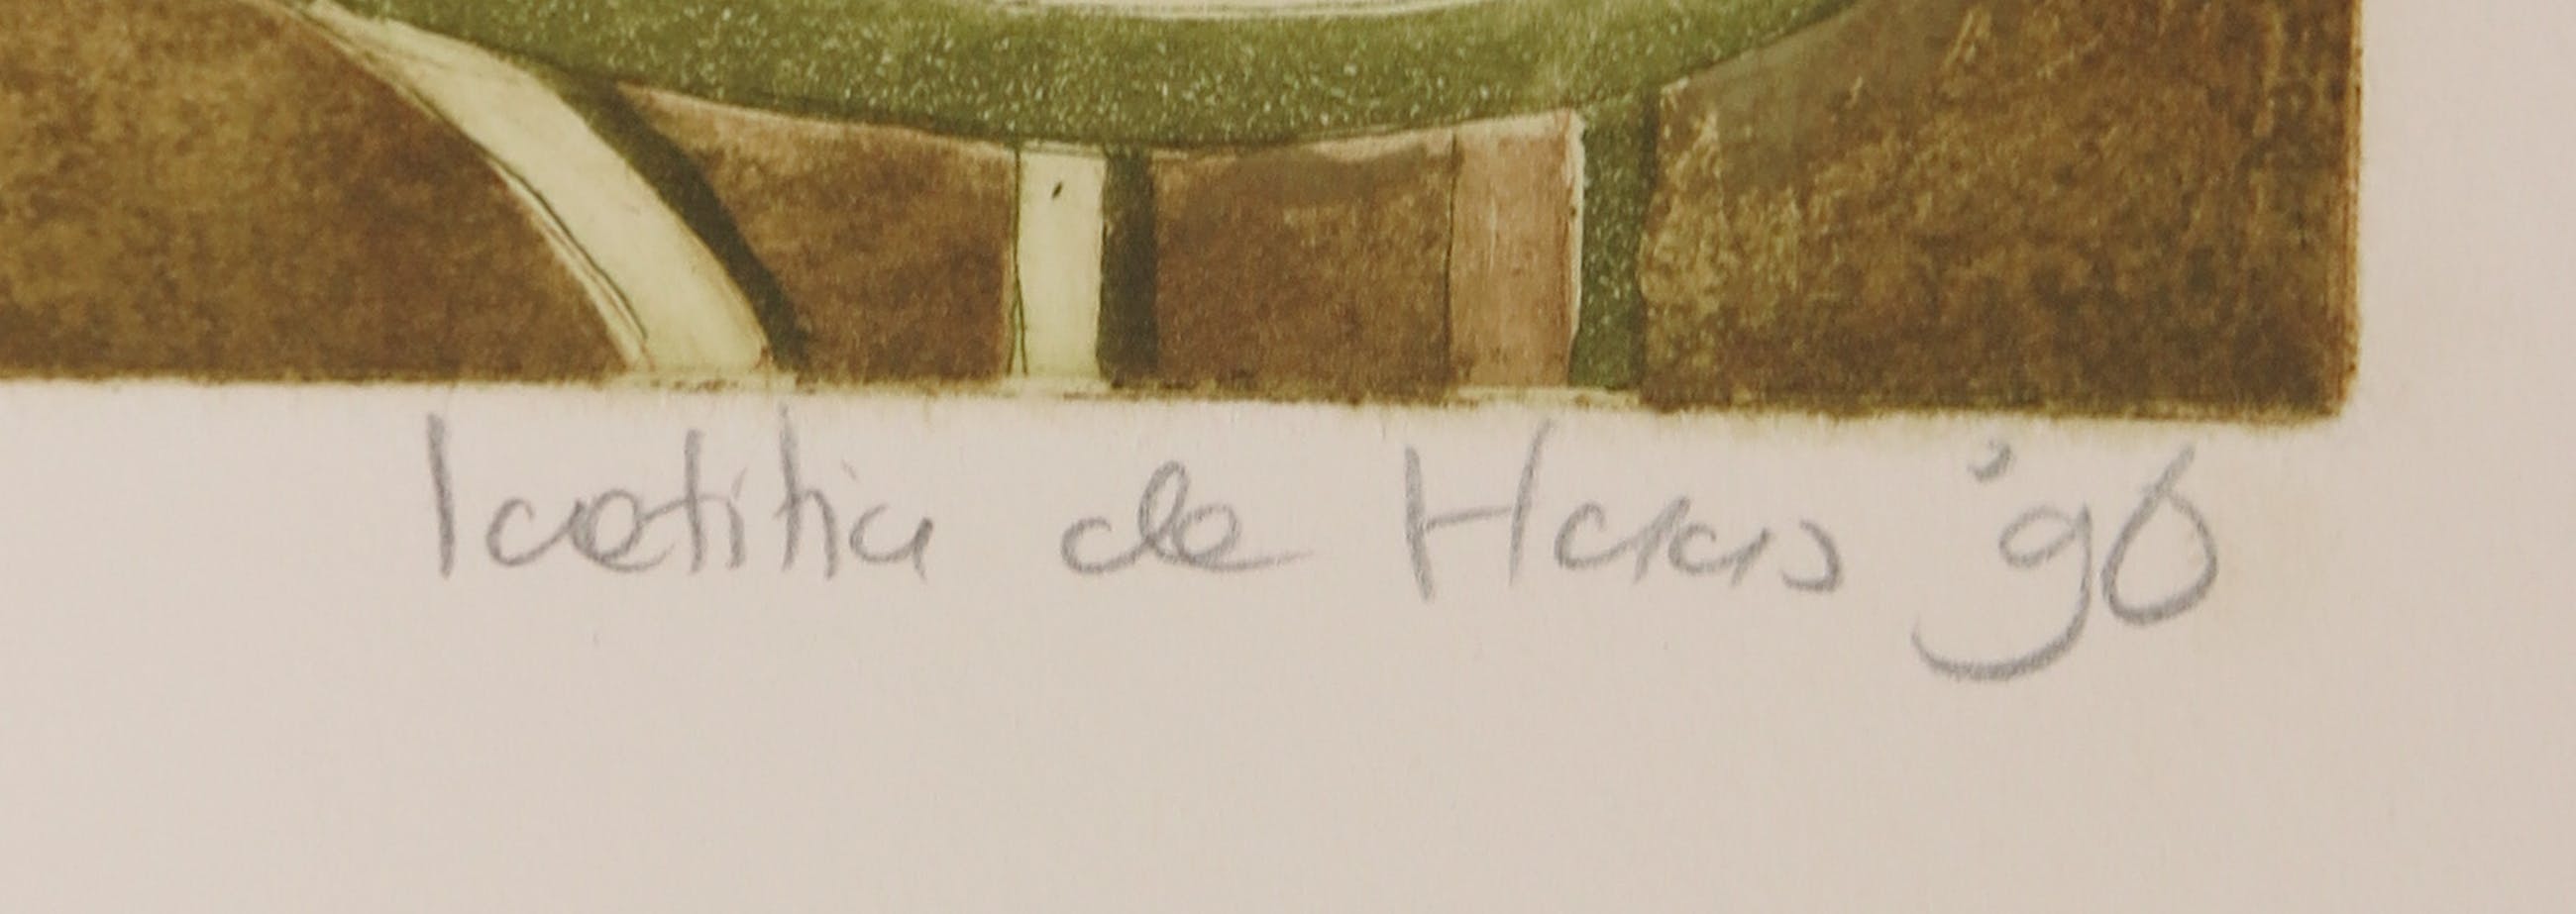 laetitia de Haas '96